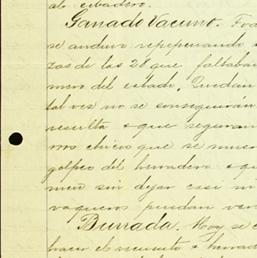 al cibadero.
Ganado Vacuno. Fra
se anduvo repepenando a
zas de las 28 que faltaban
mero del estado. Quedan
tal vez no se conseguiran
resulta que seguram
ros chicos que se mue
golpes del herradero o q
men sin dejar casi n
vaqueros puedan ver
Burrada. Hoy se c
hacer el recuento o herrad